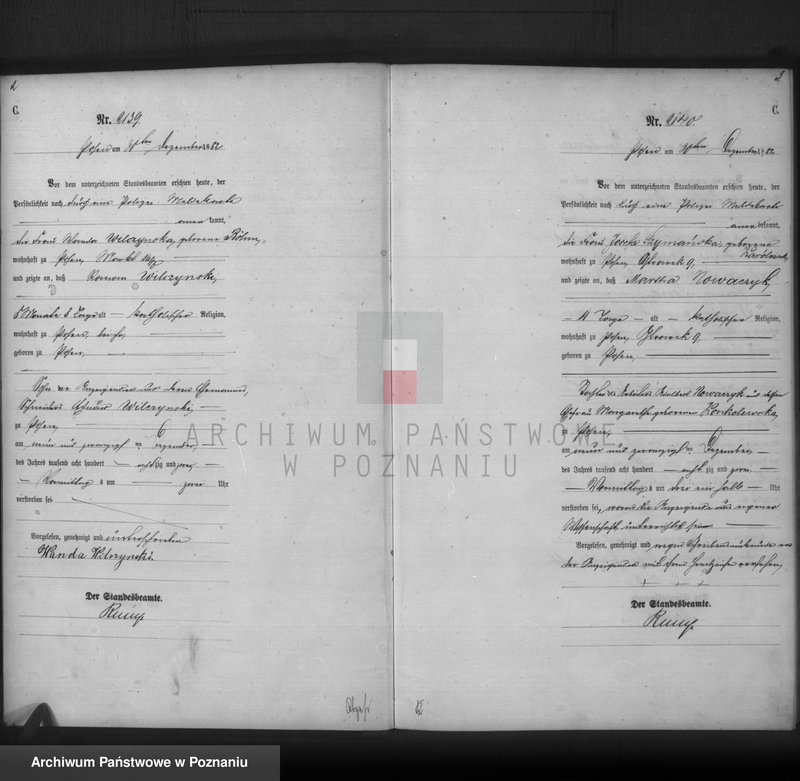 2
C.
Nr. 2139.
Posen am Dezember 1882
Vor dem unterzeichneten Standesbeamten erschien heute, der
Persönlichkeit nach durch eine Polizei Meldekarte
anerkannt,
die Frau Wanda Wilczynska, geborene Böhm,
wohnhaft zu Posen, Markt
und zeigte an, daß Roman Wilczynski,
8 Monate 8 Tage alt — katholischer Religion,
wohnhaft zu Posen, bei ihr,
geboren zu Posen,
Sohn der Anzeigenden und deren Ehemannes,
Schneiders Wilczynski,
zu Posen,
am neun und zwanzigsten Dezember,
des Jahres tausend acht hundert achtzig und zwei
Vormittags um Uhr
verstorben sei
Vorgelesen, genehmigt und unterschrieben
Wanda Wilczynski
Der Standesbeamte.
3
C.
Nr. 2140.
Posen am Dezember 1882
Vor dem unterzeichneten Standesbeamten erschien heute, der
Persönlichkeit nach durch eine Polizei Meldekarte
anerkannt,
die Frau Josefa Szymańska, geborene
wohnhaft zu Posen, 9,
und zeigte an, daß Martha Nowaczyk,
Tage — alt — katholischer Religion,
wohnhaft zu Posen, 9,
geboren zu Posen,
Tochter des Nowaczyk und dessen
Ehefrau Margarethe geborenen
zu Posen,
am neun und zwanzigsten Dezember
des Jahres tausend acht hundert achtzig und zwei
Vormittags um drei ein halb Uhr
verstorben sei, wovon die Anzeigende aus eigener
Wissenschaft unterrichtet sei
Vorgelesen, genehmigt und wegen Schreibensunkunde von
der Anzeigenden mit ihrem Handzeichen versehen,
+ + +
Der Standesbeamte.
ARCHIWUM PAŃSTWOWE
W POZNANIU
Archiwum Państwowe w Poznaniu